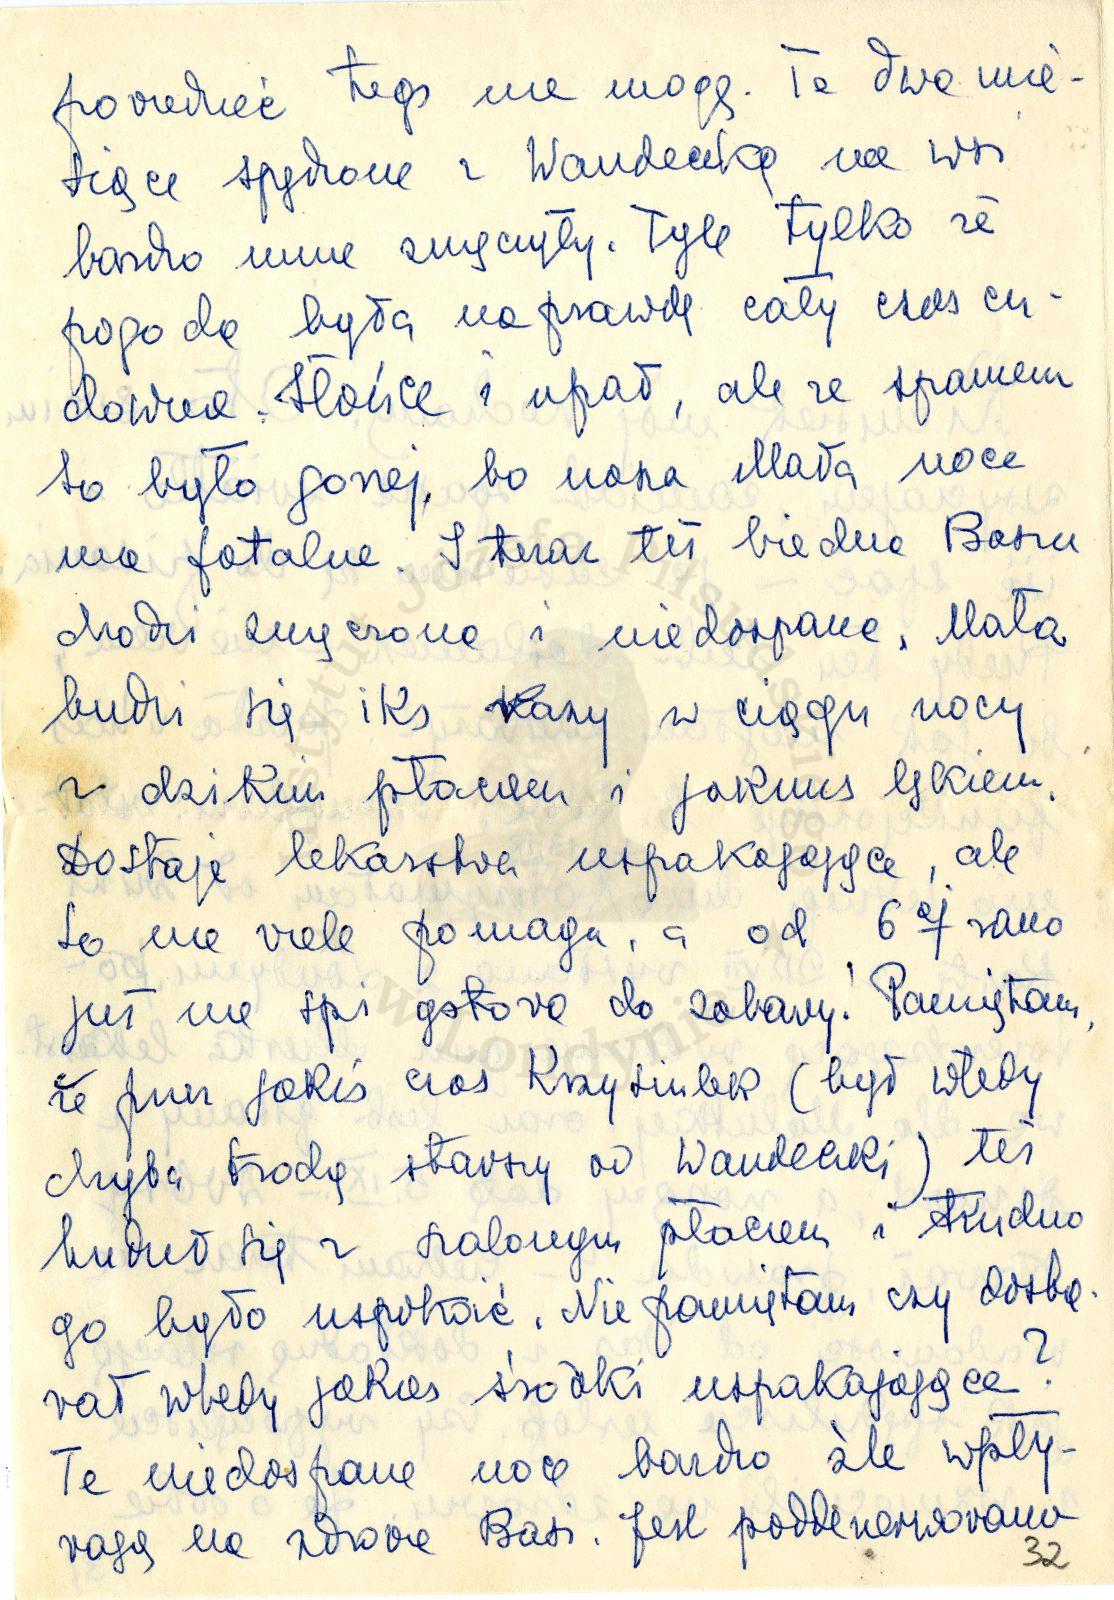 powiedzieć tego nie mogę. Te dwa mie-
siące spędzone z Wandeczką na wsi
bardzo mnie zmęczyły. Tyle tylko że
pogoda była naprawdę cały czas cu-
downa. Słońce i upał, ale ze spaniem
to było gorzej, bo nasza Mała noce
ma fatalne. I teraz też biedna Basia
chodzi zmęczona i niedospana. Mała
budzi się iks razy w ciągu nocy
z dzikim płaczem i jakimś lękiem.
Dostaje lekarstwa uspakajające, ale
to nie wiele pomaga, a od 6ej rano
już nie śpi gotowa do zabawy! Pamiętam,
że przez jakiś czas Krzysiulek (był wtedy
chyba trochę starszy od Wandeczki) też
budził się z szalonym płaczem i trudno
go było uspokoić. Nie pamiętam czy dosta-
wał wtedy jakieś środki uspakajające?
Te niedospane noce bardzo źle wpły-
wają na zdrowie Basi. Jest poddenerwowana
32
Instytut Józefa Piłsudskiego
w Londynie